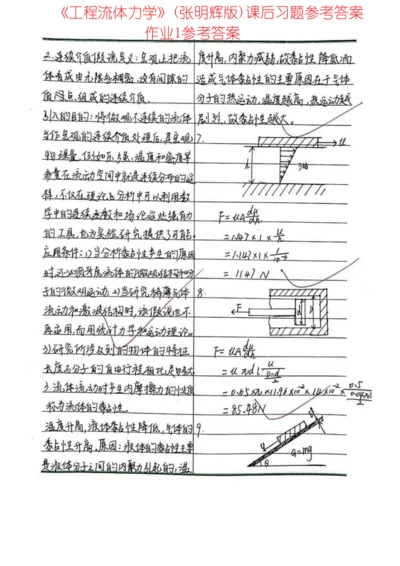 《工程流体力学》(张明辉版)课后习题参考答案
作业1参考答案
2.连续介质假说意义:宏观上把流
体看成由无限多稠密、没有间隙的
流体质点组成的连续介质.
引入的目的:将微观不连续的流体
当作宏观的连续介质处理后,其宏观
物理量,例如压强、温度和密度等
参量在流动空间中就是连续分布的这
样,不仅在理论上分析中可以利用数
学中的连续函数和场论这些强有力
的工具,也为实验研究提供了可能.
应用条件:1)当分析黏性产生的原因
时,还必须考虑流体的微观结构和分
子的微观运动.2)当研究稀薄气体
流动和激波结构时,该假说也不
再适用,而用统计力学和运动理论.
3)研究所涉及到的物体的特征
长度与分子的自由行程相比
3.流体流动时产生内摩擦力的性质
称为流体的黏性.
温度升高,液体黏性降低,气体的
黏性升高.原因:液体的黏性主要
是液体分子之间的内聚力引起的,温
度升高,内聚力减弱,故黏性降低;而
造成气体黏性的主要原因在于气体
分子的热运动,温度越高,热运动越
剧烈,故黏性越大.
7.
u
h
F=μA du/dh
=1.147×1×u/h
=1.147×1×1/10⁻³
=1147 N
8.
F
d
D
F=μA du/dh
=μπdL u/((D-d)/2)
=85.48N
9.
G=mg
θ